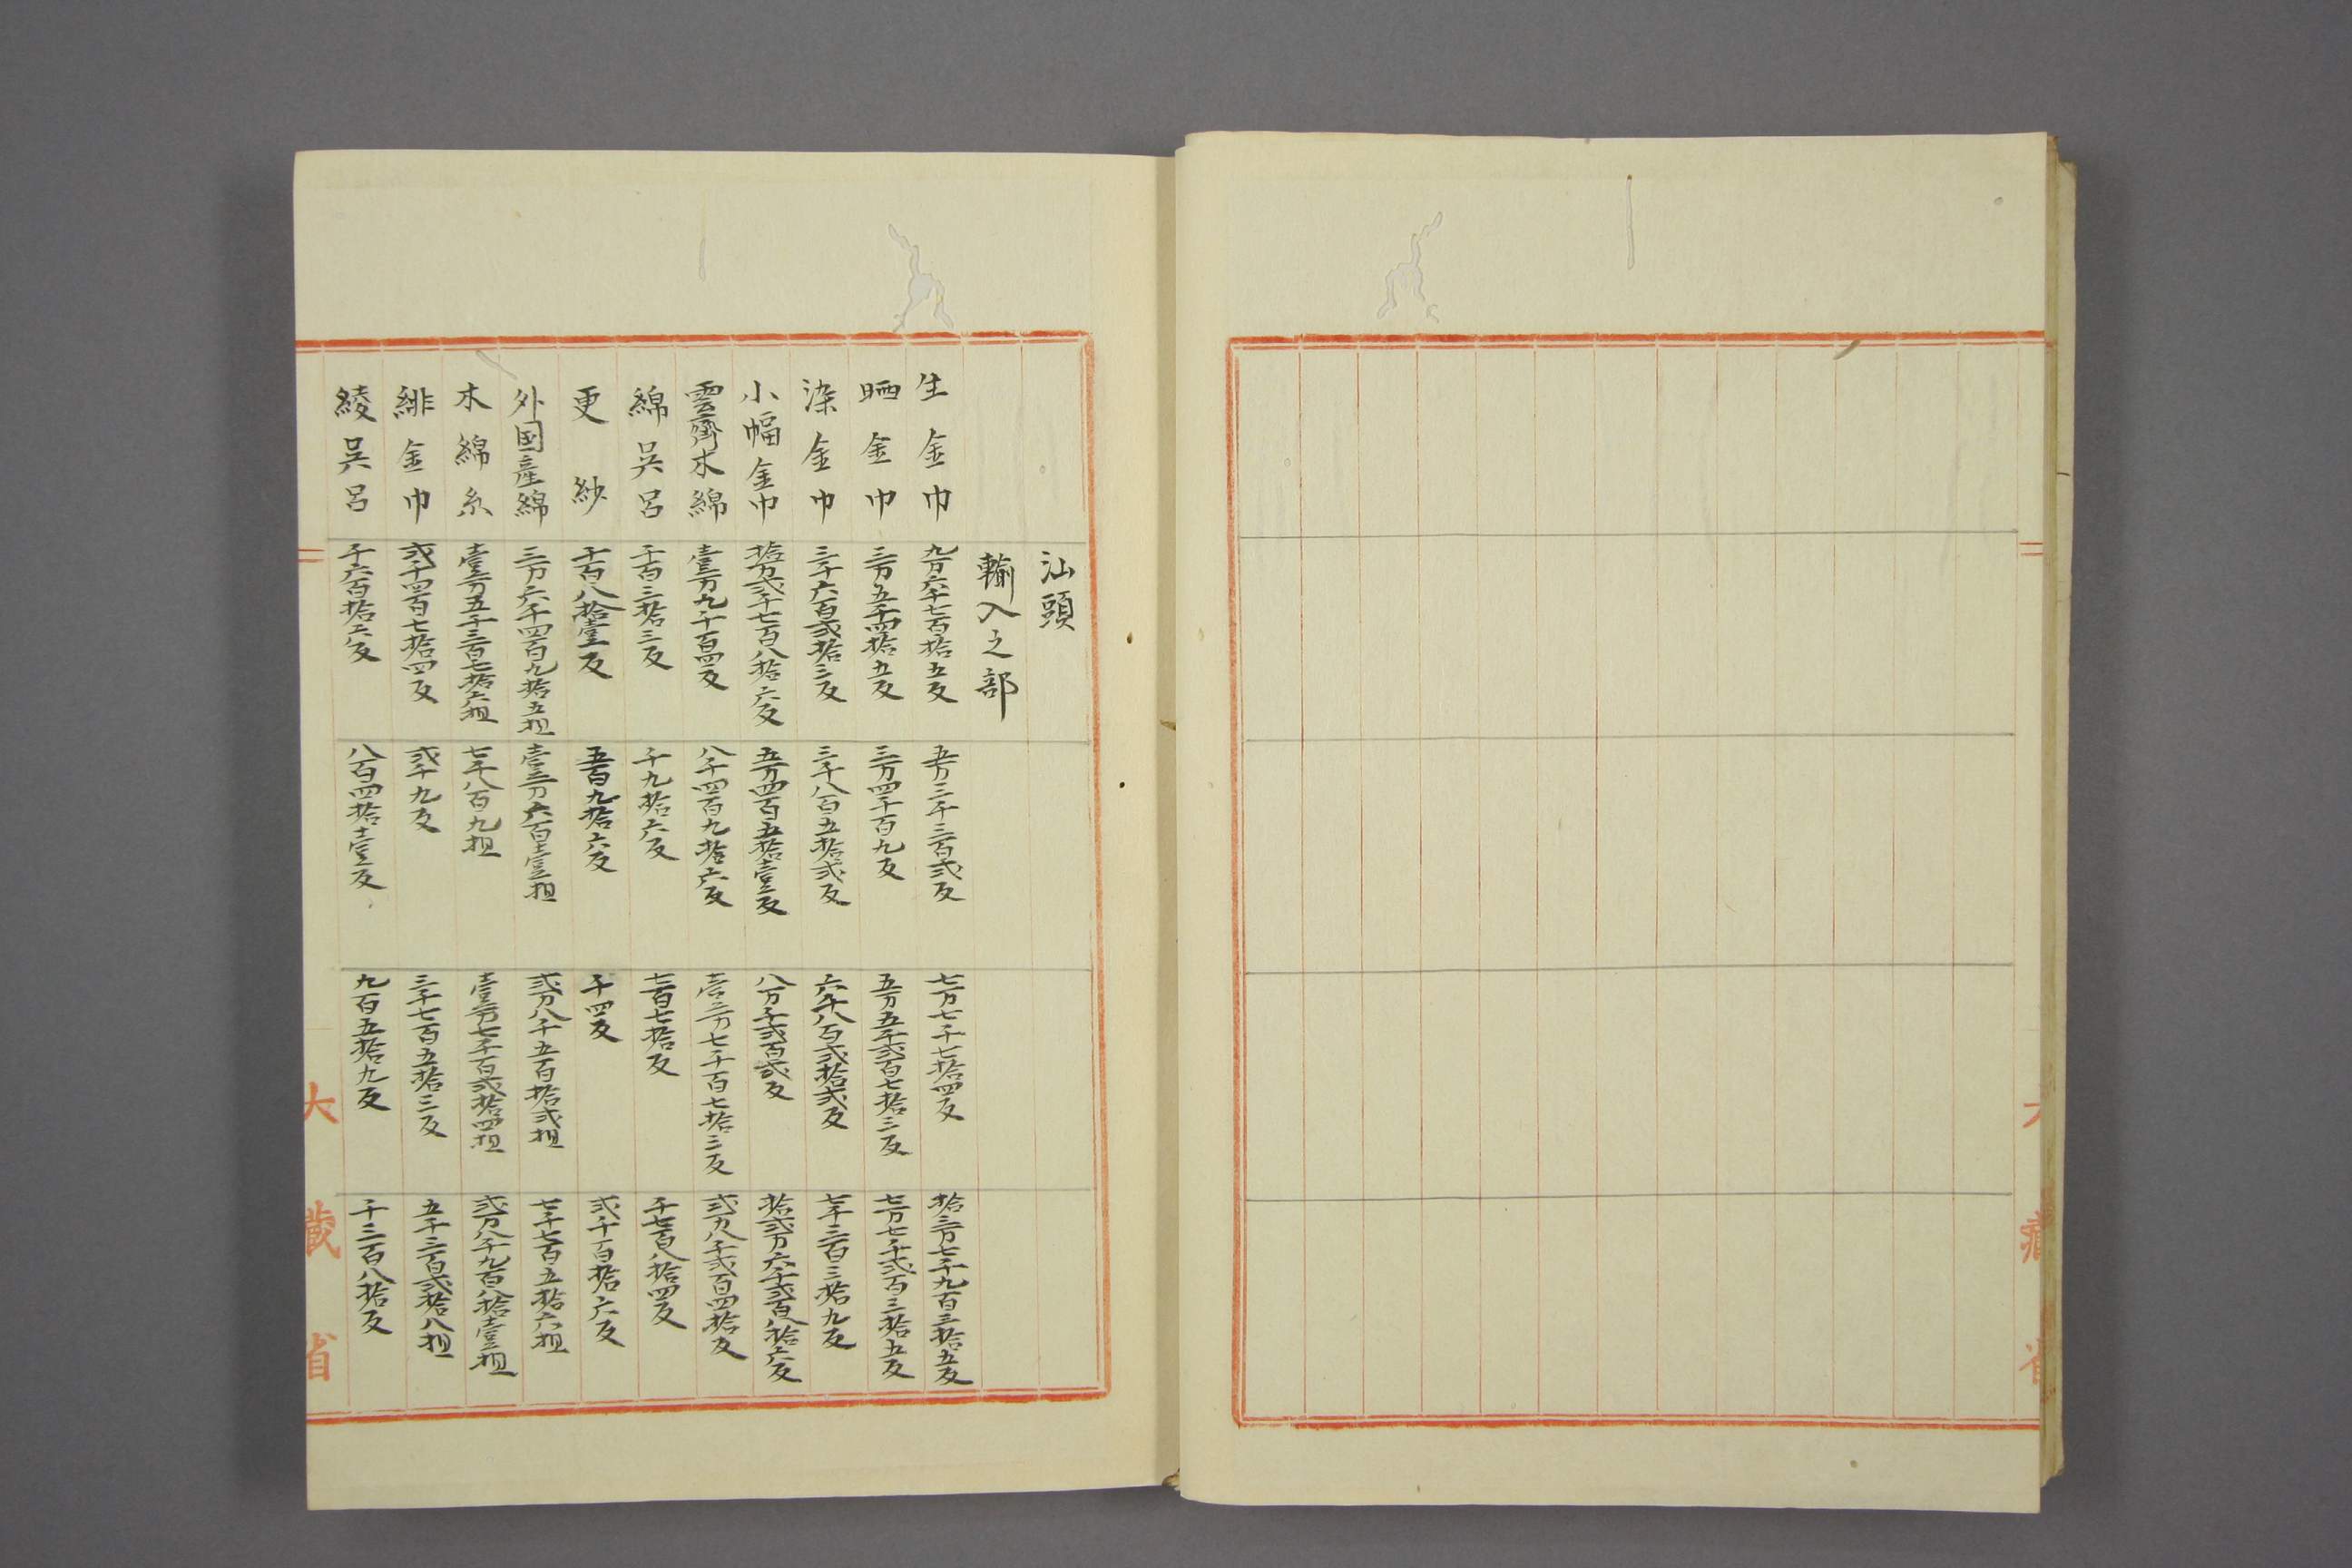 汕頭
輸入之部
生金巾 九万六千七百拾五反 五万三千三百弐反 七万七千七拾四反 拾三万七千九百三拾五反
晒金巾 三万五千四拾五反 三万四千百九反 五万五千弐百七拾三反 七万七千弐百三拾五反
染金巾 三千六百弐拾三反 三千八百五拾弐反 六千八百弐拾弐反 七千三百三拾九反
小幅金巾 拾万弐千七百八拾六反 五万四百五拾壹反 八万千弐百弐反 拾弐万六千弐百八拾六反
雲齊木綿 壹万九千百四反 八千四百九拾六反 壹万七千百七拾三反 弐万八千弐百四拾反
綿呉呂 千百三拾三反 千九拾六反 七百七拾反 千七百八拾四反
更紗 千百八拾壹反 五百九拾六反 千四反 弐千百拾六反
外国産綿 三万六千四百九拾五担 壹万六百壹担 弐万八千五百拾弐担 七千七百五拾六担
木綿糸 壹万五千三百七拾六担 七千八百九担 壹万七千百弐拾四担 弐万八千九百八拾壹担
緋金巾 弐千四百七拾四反 弐千九反 三千七百五拾三反 五千三百弐拾八担
綾呉呂 千六百拾六反 八百四拾壹反 九百五拾九反 千三百八拾反
大蔵省